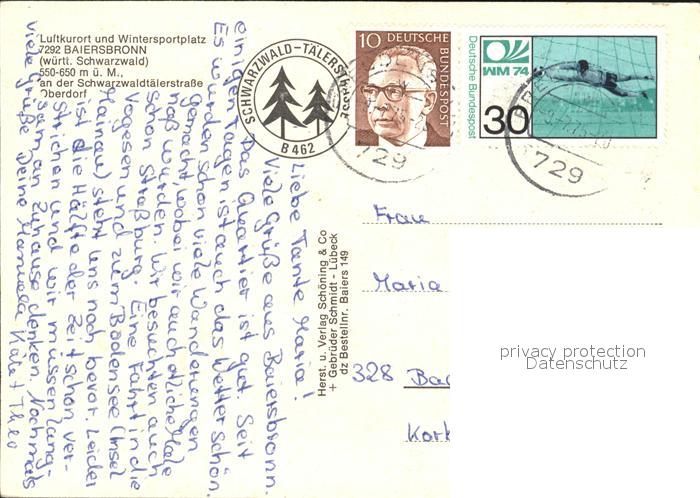 Luftkurort und Wintersportplatz
7292 BAIERSBRONN
(württ. Schwarzwald)
550-650 m ü. M.,
an der Schwarzwaldtälerstraße
Oberdorf
SCHWARZWALD-TÄLERSTRASSE
B 462
10 DEUTSCHE BUNDESPOST
WM 74
Deutsche Bundespost
30
729
729
Liebe Tante Maria!
Viele Grüße aus Baiersbronn.
Das Quartier ist gut. Seit
einigen Tagen ist auch das Wetter schön.
Es wurden schon viele Wanderungen
gemacht, wobei wir auch etliche Male
naß wurden. Wir besuchten auch
schon Straßburg. Eine Fahrt in die
Vogesen und zum Bodensee (Insel
Mainau) steht uns noch bevor. Leider
ist die Hälfte der Zeit schon ver-
strichen und wir müssen lang-
sam an Zuhause denken. Nochmals
viele Grüße Deine Manuela Käte + Theo
Herst. u. Verlag Schöning & Co
+ Gebrüder Schmidt - Lübeck
dz Bestellnr. Baiers 149
Frau
Maria
328 Bad
Kork
privacy protection
Datenschutz